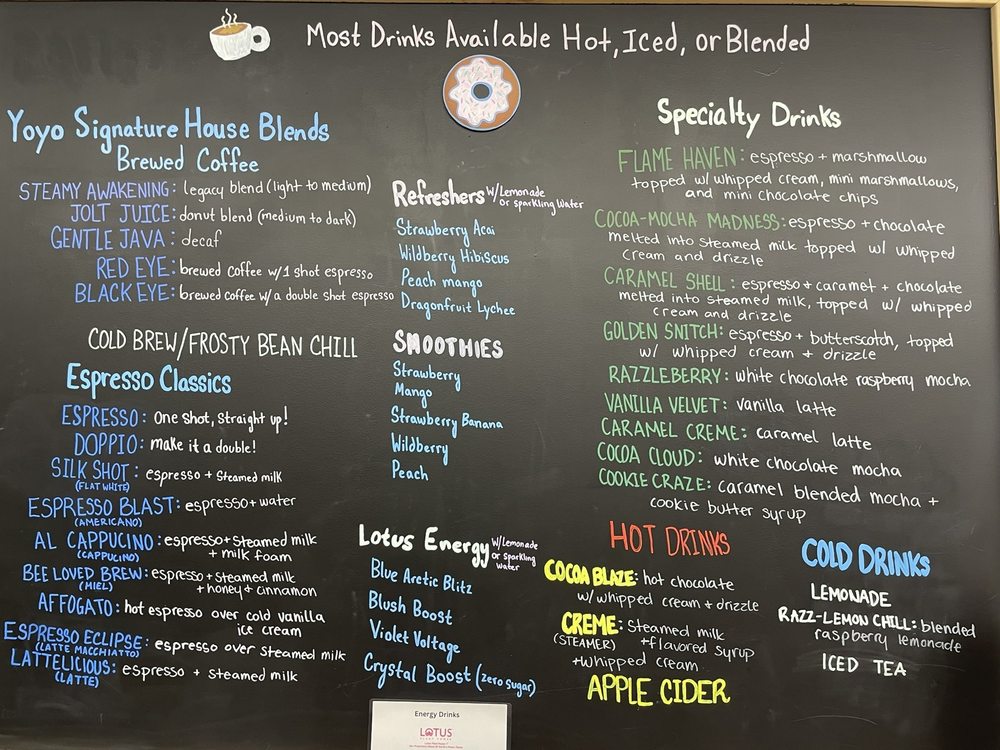 Most Drinks Available Hot, Iced, or Blended
Yoyo Signature House Blends
Brewed Coffee
STEAMY AWAKENING: legacy blend (light to medium)
JOLT JUICE: donut blend (medium to dark)
GENTLE JAVA: decaf
RED EYE: brewed coffee w/1 shot espresso
BLACK EYE: brewed coffee w/a double shot espresso
COLD BREW/FROSTY BEAN CHILL
Espresso Classics
ESPRESSO: One shot, Straight up!
DOPPIO: make it a double!
SILK SHOT: espresso + steamed milk
(FLAT WHITE)
ESPRESSO BLAST: espresso + water
(AMERICANO)
AL CAPPUCINO: espresso + steamed milk
(CAPPUCINO) + milk foam
BEE LOVED BREW: espresso + steamed milk
(MIEL) + honey + cinnamon
AFFOGATO: hot espresso over cold vanilla
ice cream
ESPRESSO ECLIPSE: espresso over steamed milk
(LATTE MACCHIATO)
LATTELICIOUS: espresso + steamed milk
(LATTE)
Refreshers w/Lemonade
or Sparkling Water
Strawberry Acai
Wildberry Hibiscus
Peach mango
Dragonfruit Lychee
SMOOTHIES
Strawberry
Mango
Strawberry Banana
Wildberry
Peach
Lotus Energy w/Lemonade
or Sparkling
Water
Blue Arctic Blitz
Blush Boost
Violet Voltage
Crystal Boost (zero sugar)
Energy Drinks
LOTUS
Specialty Drinks
FLAME HAVEN: espresso + marshmallow
topped w/ whipped cream, mini marshmallows,
and mini chocolate chips
COCOA-MOCHA MADNESS: espresso + chocolate
melted into steamed milk topped w/ whipped
cream and drizzle
CARAMEL SHELL: espresso + caramel + chocolate
melted into steamed milk, topped w/ whipped
cream and drizzle
GOLDEN SNITCH: espresso + butterscotch, topped
w/ whipped cream + drizzle
RAZZLEBERRY: white chocolate raspberry mocha
VANILLA VELVET: vanilla latte
CARAMEL CREME: caramel latte
COCOA CLOUD: white chocolate mocha
COOKIE CRAZE: caramel blended mocha +
cookie butter syrup
HOT DRINKS
COCOA BLAZE: hot chocolate
w/ whipped cream + drizzle
CREME: Steamed milk
(STEAMER) + flavored syrup
+ whipped cream
APPLE CIDER
COLD DRINKS
LEMONADE
RAZZ-LEMON CHILL: blended
raspberry lemonade
ICED TEA